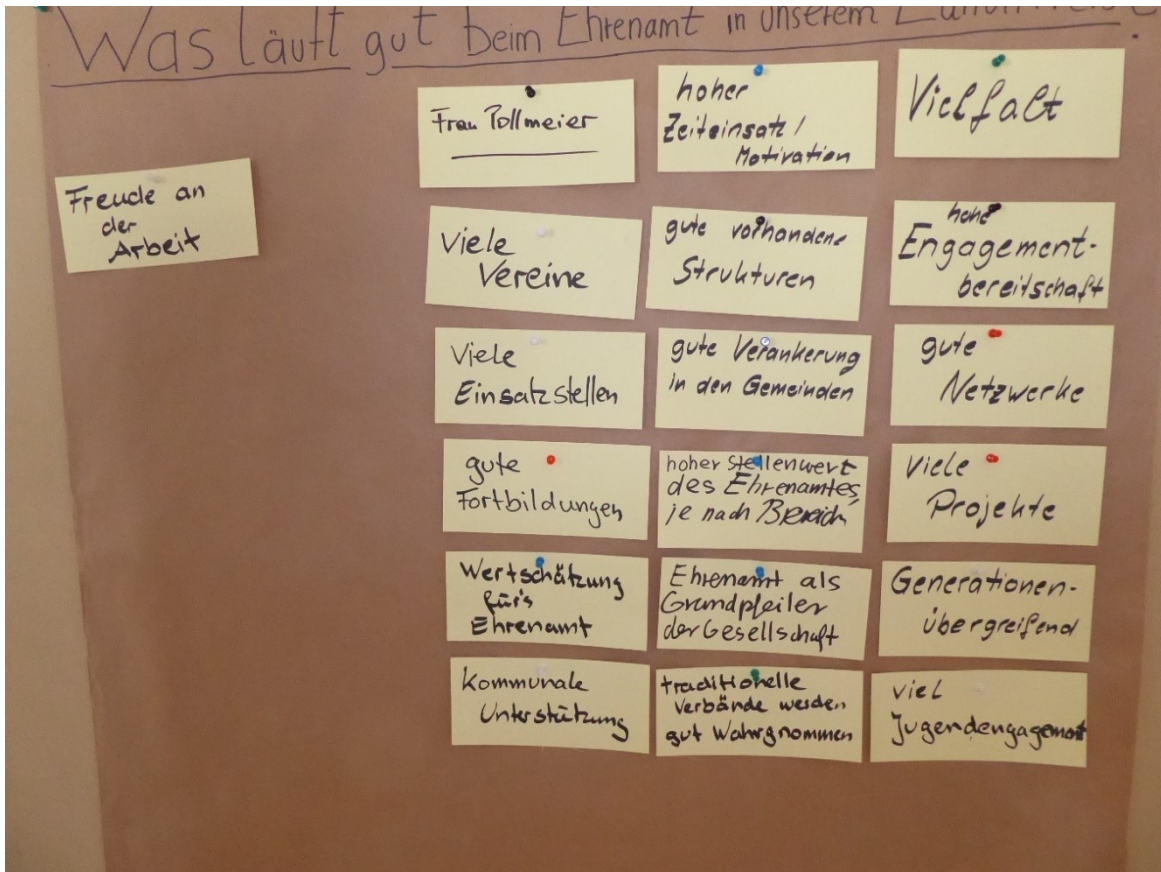 Was läuft gut beim Ehrenamt in unserem
Freude an
der
Arbeit
Frau Pollmeier
Viele
Vereine
Viele
Einsatzstellen
gute
Fortbildungen
Wertschätzung
für's
Ehrenamt
Kommunale
Unterstützung
hoher
Zeiteinsatz /
Motivation
gute vorhandene
Strukturen
gute Verankerung
in den Gemeinden
hoher Stellenwert
des Ehrenamtes,
je nach Bereich
Ehrenamt als
Grundpfeiler
der Gesellschaft
traditionelle
Verbände werden
gut Wahrgnommen
Vielfalt
hohe
Engagement-
bereitschaft
gute
Netzwerke
Viele
Projekte
Generationen-
übergreifend
viel
Jugendengagement